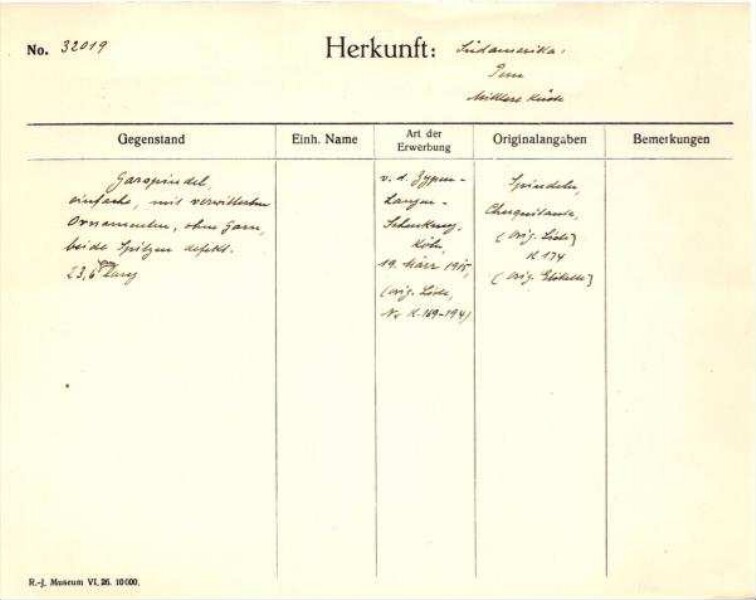 No. 32019
Herkunft: Südamerika.
Peru
Mittlere Küste
Gegenstand
Einh. Name
Art der Erwerbung
Originalangaben
Bemerkungen
Garnspindel,
einfache, mit verwitterten
Ornamenten, ohne Garn,
beide Spitzen defekt.
23,6 cm lang
v. d. Zypen-
Langen-
Schenkung,
Köln,
19. März 1915,
(orig. Liste,
Nr. d. 169-194)
Spindeln,
(orig. Liste)
d 174
(orig. Etikette)
R.-J. Museum VI. 26. 10 000.